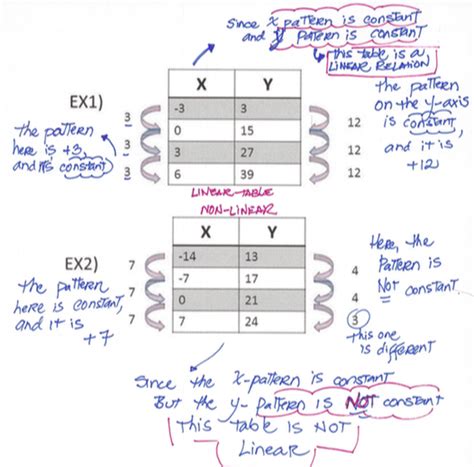 Since X pattern is constant
and Y pattern is constant
this table is a
LINEAR RELATION
EX1)
X Y
-3 3
0 15
3 27
6 39
3
3
3
12
12
12
the pattern
here is +3,
and it's constant
the pattern
on the y-axis
is constant,
and it is
+12
LINEAR-TABLE
NON-LINEAR
EX2)
X Y
-14 13
-7 17
0 21
7 24
7
7
7
4
4
3
the pattern
here is constant,
and it is
+7
Here, the
Pattern is
Not constant
this one
is different
Since the X-pattern is constant
But the y-pattern is NOT constant
This table is NOT
Linear